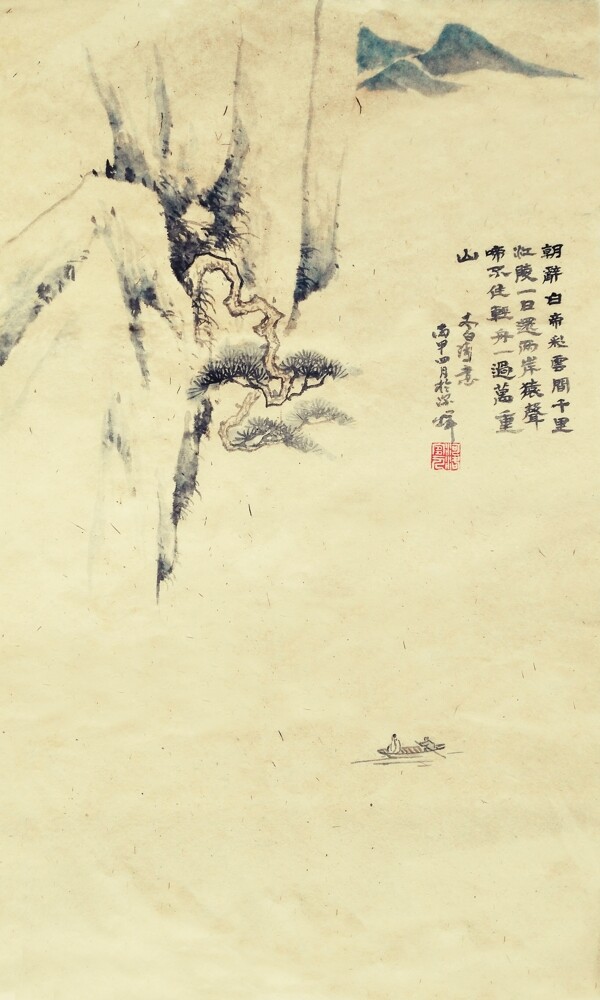 朝辭白帝彩雲間千里
江陵一日還兩岸猿聲
啼不住輕舟一過萬重
山
太白詩意
丙申四月於深輝